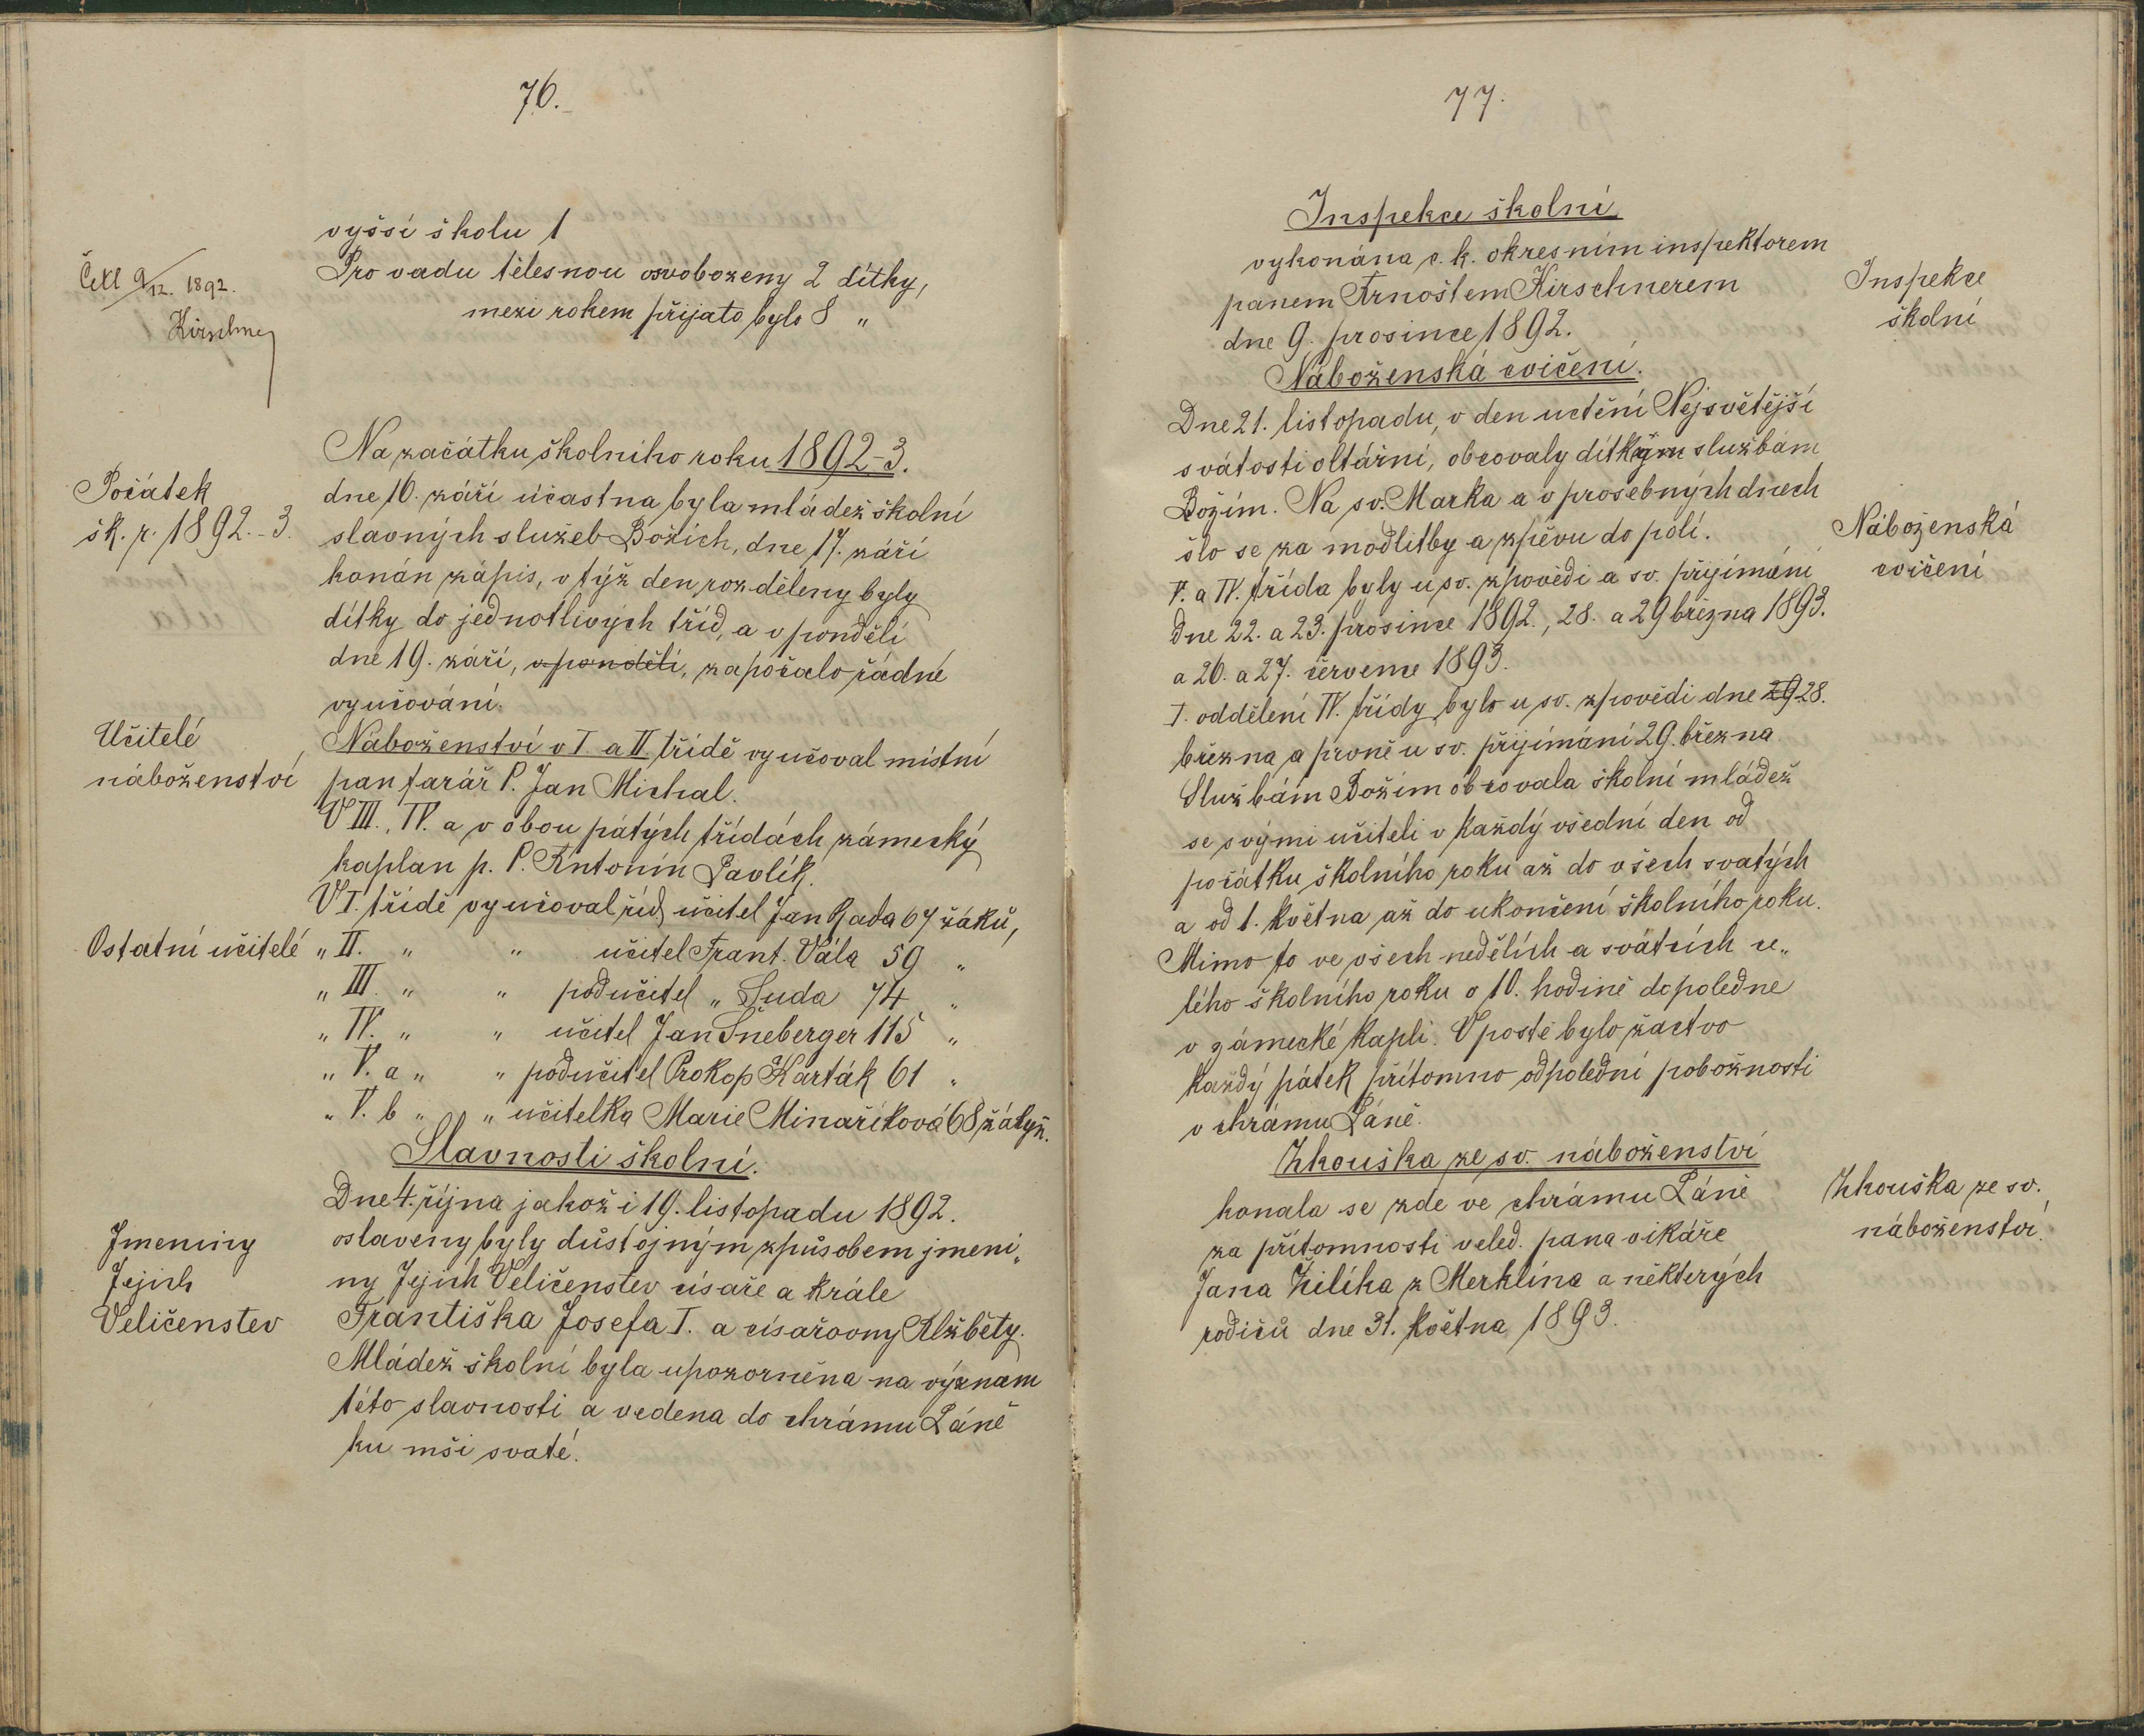 76.
vyšší školu 1
Pro vadu tělesnou osvobozeny 2 dítky,
mezi rokem přijato bylo 8 "
Četl 9/12. 1892.
Kirschner
Na začátku školního roku 1892-3.
Počátek
šk. r. 1892.-3.
dne 16. září účastna byla mládež školní
slavných služeb Božích, dne 17. září
konán zápis, v týž den rozděleny byly
dítky do jednotlivých tříd, a v pondělí
dne 19. září, v pondělí, započalo řádné
vyučování.
Učitelé
náboženství
Náboženství v I. a II. třídě vyučoval místní
pan farář P. Jan Michal.
V III., IV. a v obou pátých třídách zámecký
kaplan p. P. Antonín Pavlík.
V I. třídě vyučoval říd. učitel Jan Rada 67 žáků,
Ostatní učitelé
" II. " " učitel Frant. Vála 59 "
" III. " " podučitel " Suda 74 "
" IV. " " učitel Jan Šneberger 115 "
" V. a " " podučitel Prokop Karták 61 "
" V. b " " učitelka Marie Minaříková 68 žákyň.
Slavnosti školní.
Dne 4. října jakož i 19. listopadu 1892.
Jmeniny
Jejich
Veličenstev
oslaveny byly důstojným způsobem jmeni„
ny Jejich Veličenstev císaře a krále
Františka Josefa I. a císařovny Alžběty.
Mládež školní byla upozorněna na význam
této slavnosti a vedena do chrámu Páně
ku mši svaté.
77.
Inspekce školní
vykonána c. k. okresním inspektorem
panem Arnoštem Kirschnerem
dne 9. prosince 1892.
Inspekce
školní
Náboženská cvičení.
Dne 21. listopadu, v den uctění Nejsvětější
svátosti oltářní, obcovaly dítkým službám
Božím. Na sv. Marka a v prosebných dnech
šlo se za modlitby a zpěvu do polí.
Náboženská
cvičení
V. a IV. třída byly u sv. zpovědi a sv. přijímání
dne 22. a 23. prosince 1892., 28. a 29 března 1893.
a 26. a 27. července 1893.
I. oddělení IV. třídy bylo u sv. zpovědi dne 29 28.
března a prvně u sv. přijímání 29. března
Službám Božím obcovala školní mládež
se svými učiteli v každý všední den od
počátku školního roku až do všech svatých
a od 1. května až do ukončení školního roku.
Mimo to ve všech nedělích a svátcích ce„
lého školního roku o 10. hodině dopoledne
v zámecké kapli. V postě bylo žactvo
každý pátek přítomno odpolední pobožnosti
v chrámu Páně.
Zkouška ze sv. náboženství
konala se zde ve chrámu Páně
za přítomnosti veled. pana vikáře
Jana Žilíka z Merklína a některých
rodičů dne 31. května 1893.
Zkouška ze sv.
náboženství.